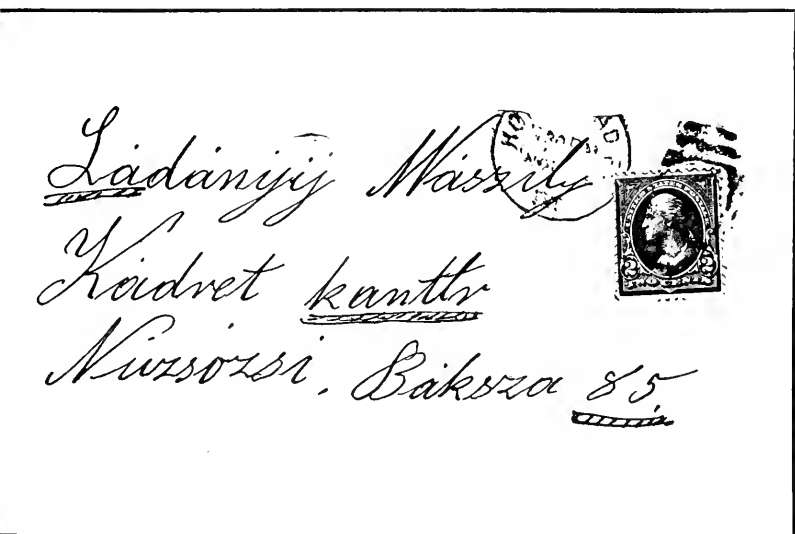 Ládányíj Mászily
Kádvet kanttr
Núzsózsi. Báksza 85